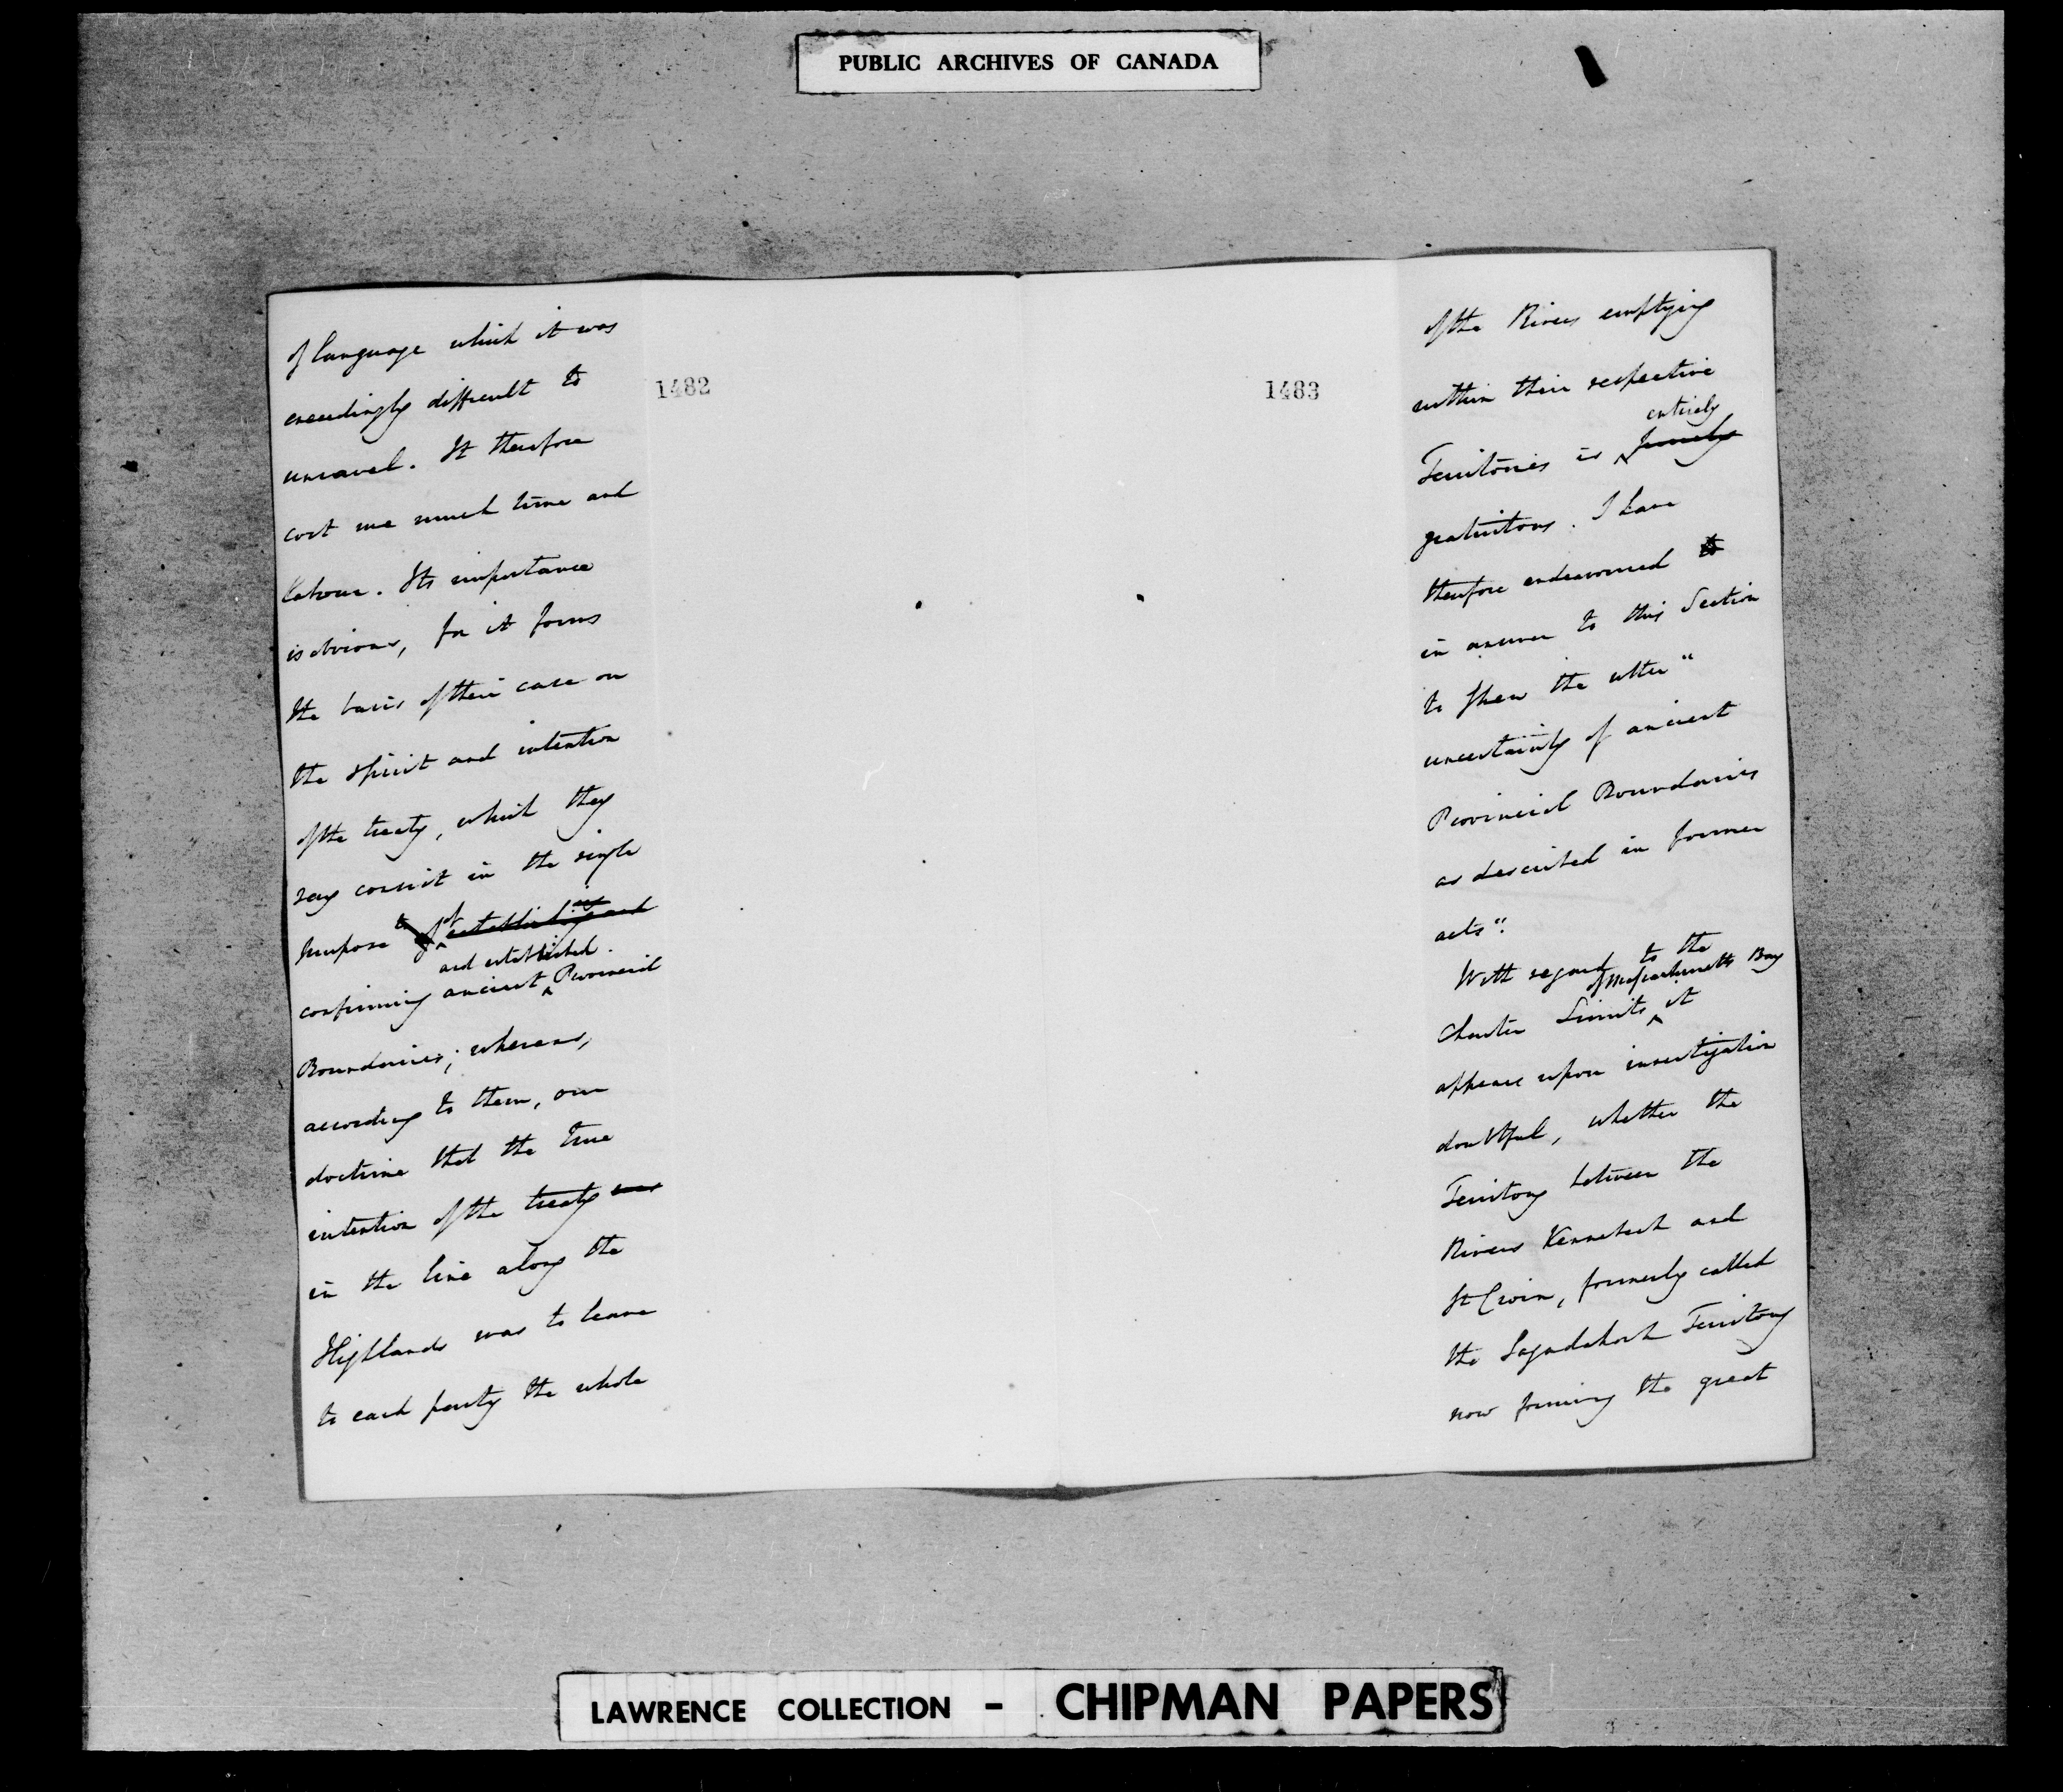 PUBLIC ARCHIVES OF CANADA
1482
of language which it was
exceedingly difficult to
unravel. It therefore
cost me much time and
labour. Its importance
is obvious, for it forms
the basis of their case on
the spirit and intention
of the treaty, which they
say consist in the single
purpose of establishing and
and established
confirming ancient Provincial
Boundaries; whereas,
according to them, our
doctrine that the true
intention of the treaty was
in the line along the
Highlands was to leave
to each party the whole
1483
of the Rivers emptying
within their respective
entirely
Territories is purely
gratuitous. I have
therefore endeavoured to
in answer to this Section
to shew the utter "
uncertainty of ancient
Provincial Boundaries
as described in former
acts".
With regard to the
of Massachusetts Bay
Charter Limits it
appears upon investigation
doubtful, whether the
Territory between the
Rivers Kennebeck and
St Croix, formerly called
the Sagadahock Territory
now forming the great
LAWRENCE COLLECTION - CHIPMAN PAPERS